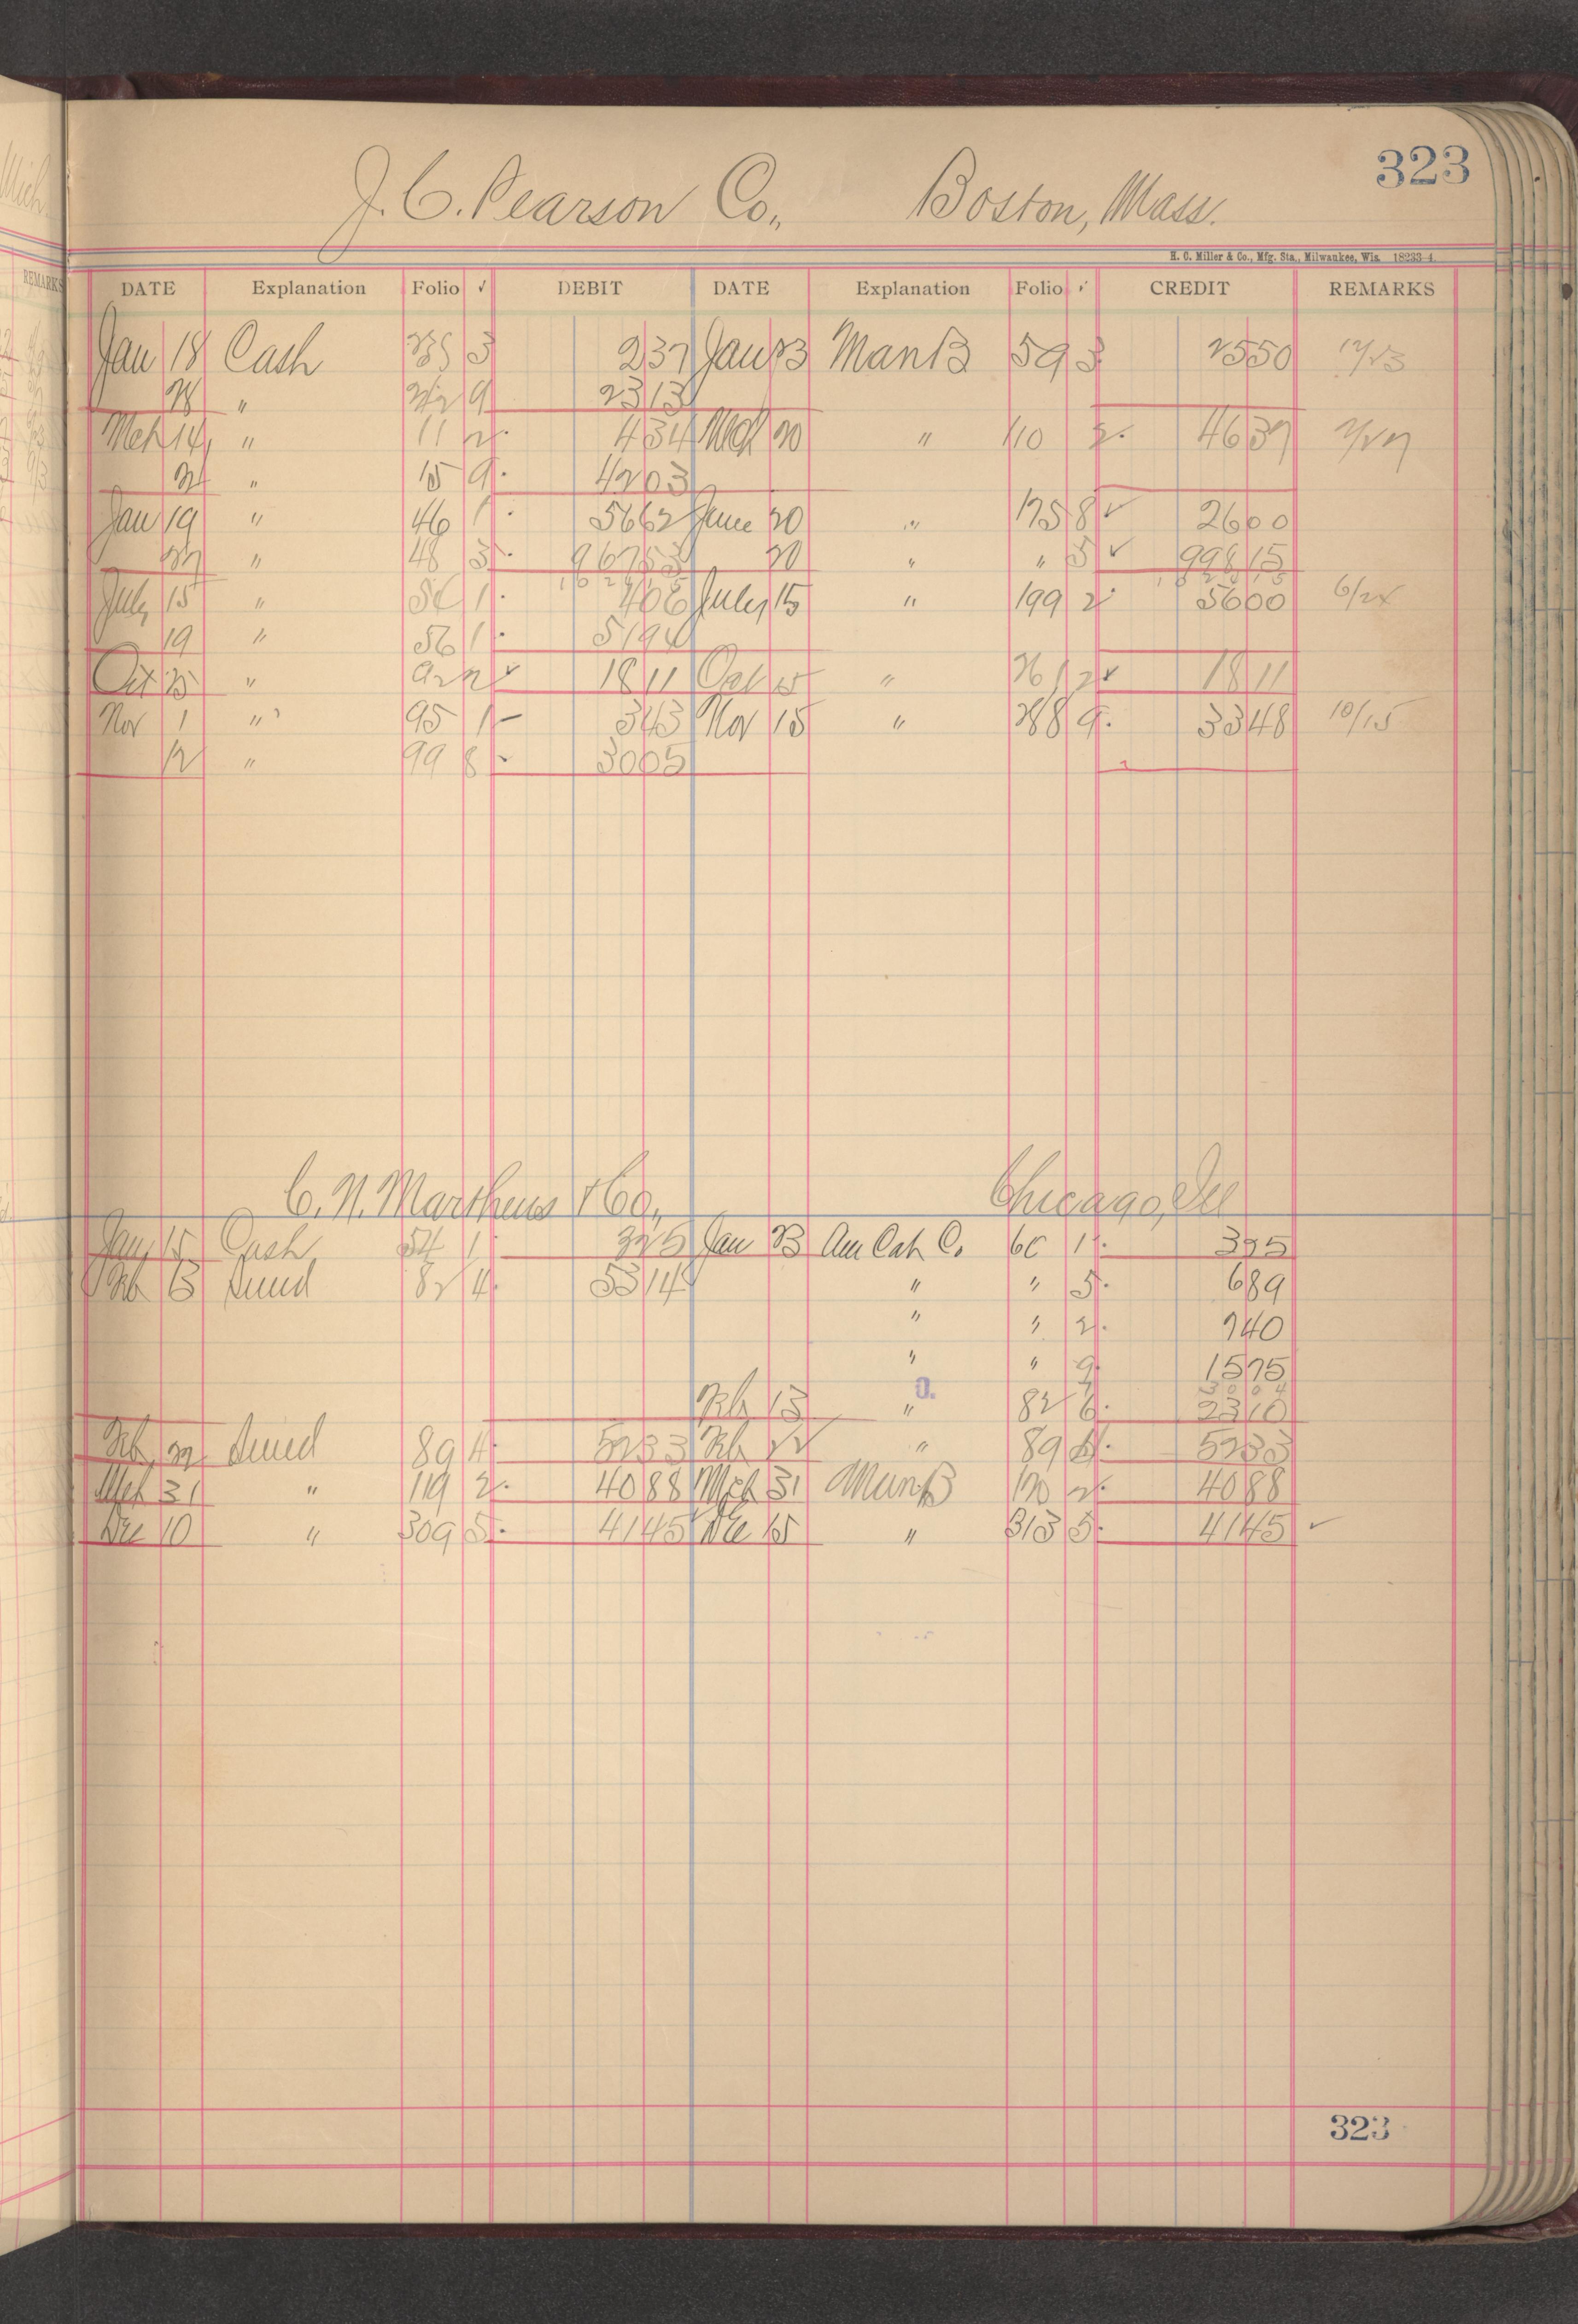 323
J. C. Pearson Co., Boston, Mass.
H. C. Miller & Co., Mfg. Sta., Milwaukee, Wis. 18233-4
DATE Explanation Folio ✓ DEBIT DATE Explanation Folio ✓ CREDIT REMARKS
Jan 18 Cash 3 237 Jan 23 Man B 59 3 2550 12/23
28 " 9 2313
Mch 14 " 11 2 434 Mch 20 " 110 2 4637 2/27
24 " 15 9 4203
Jan 19 " 46 1 5662 June 20 " 175 8 ✓ 2600
27 " 48 3 96753 20 " " 5 ✓ 99815
July 15 " 56 1 406 July 15 " 199 2 5600 6/24
19 " 56 1 5194
Oct 25 " 92 2 ✓ 1811 Oct 15 " 261 2 ✓ 1811
Nov 1 " 95 1 343 Nov 15 " 288 9 3348 10/15
12 " 99 8 3005
C. N. Marthens & Co., Chicago, Ill
Jan 15 Cash 54 1 325 Jan 23 Am Cah C. 60 1 325
Feb 13 Sund 82 4 5314 " " 5 689
" " 2 740
" " 9 1575
Feb 13 " 82 6 2310
Feb 22 Sund 89 4 5233 Feb 22 " 89 5233
Mch 31 " 119 2 4088 Mch 31 Man B 120 2 4088
Dec 10 " 309 5 4145 Dec 15 " 313 5 4145 ✓
323